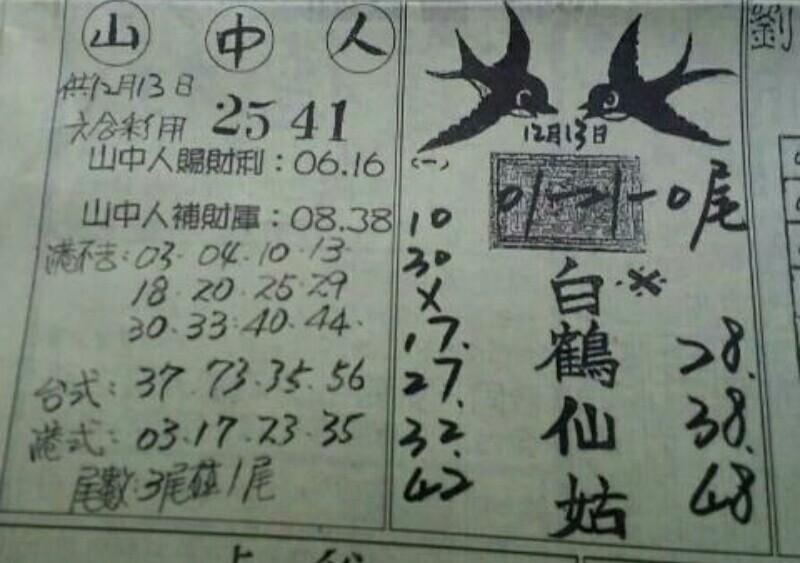 山中人
供12月13日
六合彩用 25 41
山中人賜財利：06.16
山中人補財庫：08.38
港不去：03.04.10.13.
18.20.25.29
30.33.40.44.
台式：37.73.35.56
港式：03.17.23.35
尾數：3尾 1尾
12月13日
(一)
01-21-0尾
10
30
X
17.
27.
32.
42
白鶴仙姑
28.
38.
48
劉